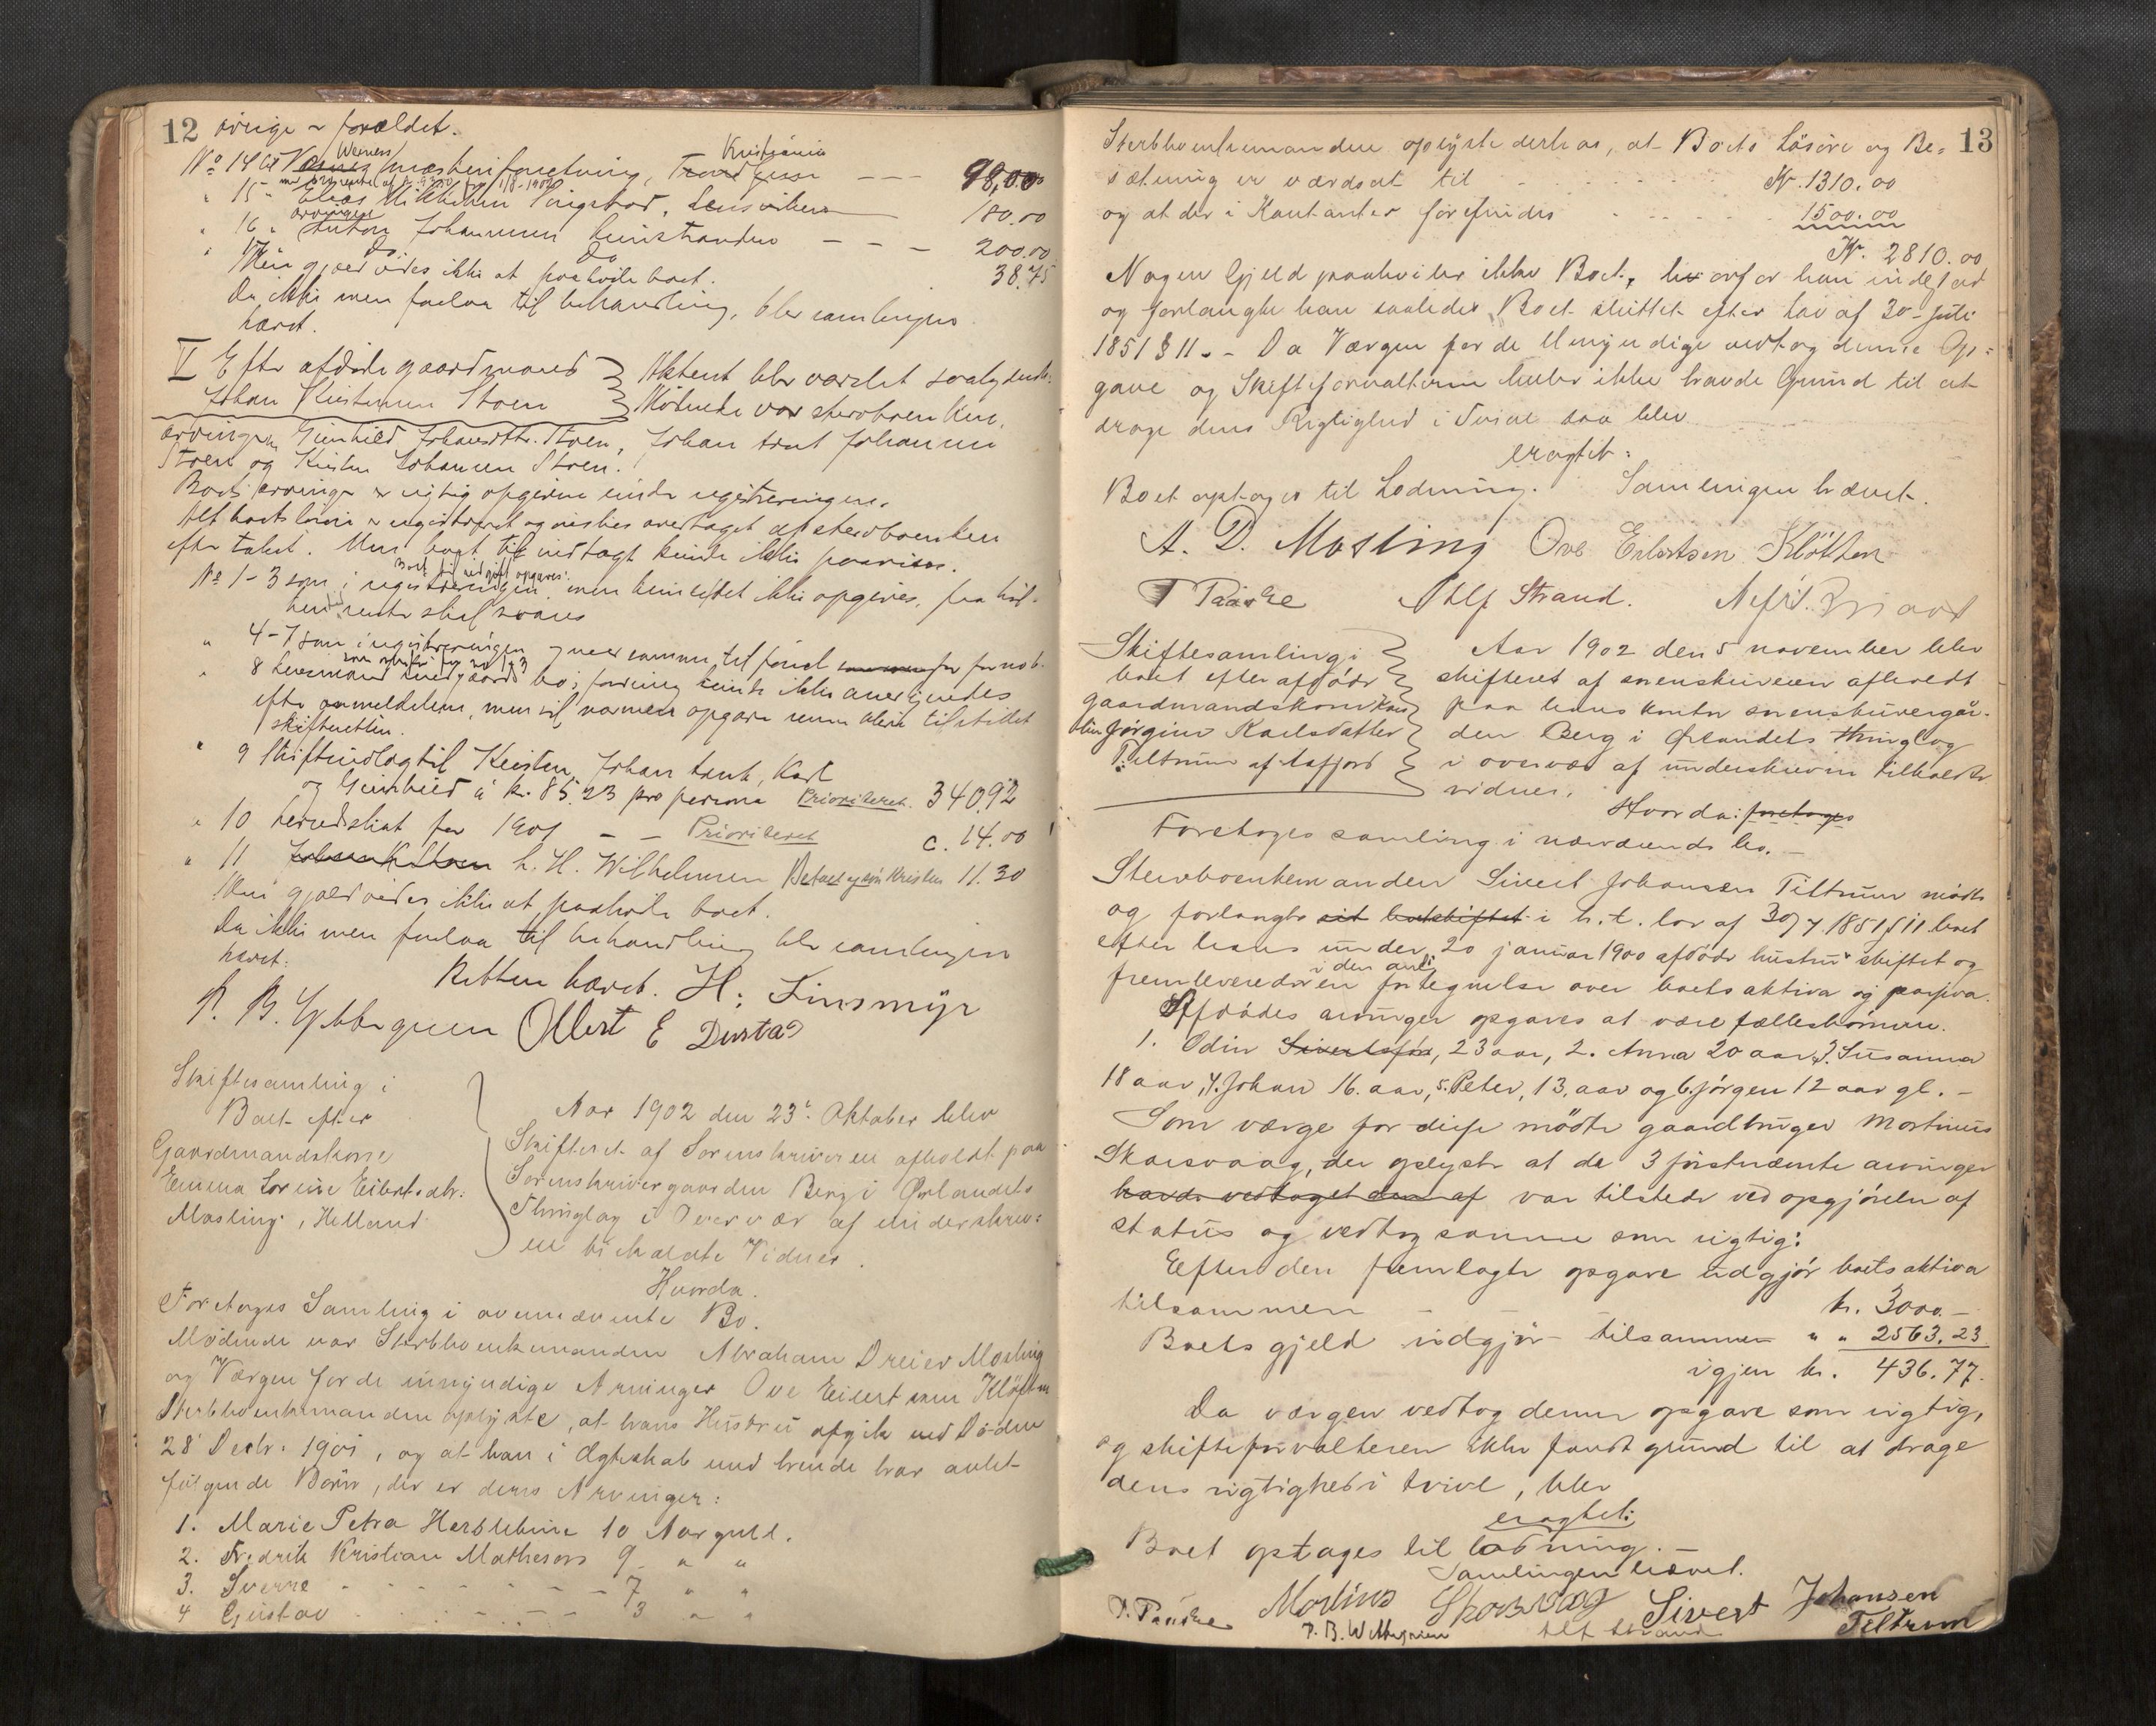 12 øvrige er forældet.
No 14 til Werness mæskeriforretning, Kristiania — — — 98,00
" 15 - Mikkelsen Lensviken — 180.00
" 16 " arvinger Anton Johannesen — — — 200.00
" Do Do 38.75
Mere gjæld vides ikke at paahvile boet.
Da ikke mere forelaa til behandling, blev samlingen
hævet.
V Efter afdøde gaardmand
Johan Kristensen Stoen
Aktent blev varslet
Mødende var sterboenken,
arvingerne Gunhild Johansdtr. Stoen, Johan Arnt Johansen
Stoen og Kristen Johansen Stoen.
Boets arvinger er rigtig opgivne under registreringen.
Alt boets løsøre er registreret og ønskes overtaget af sterboenken
efter takst. Mere boet til indtægt kunde ikke paavises.
Boet til udgift opgaves:
No 1-3 som i registreringen, men kunde det ikke opgives, fra hvil-
ken rente skal svares
" 4-7 som i registreringen
" 8 Lensmand bo; fordring kunde ikke anerkjendes
efter anmeldelsen, men vil nærmere opgave senere blive tilstillet
skifteretten.
" 9 Skifteudlæg til Kristen, Johan Arnt, Karl
og Gunhild á kr. 85.23 pro persona Prioriteret. 340.92
" 10 herredskat for 1901 — — Prioriteret c. 14.00
" 11 h. H. Wilhelmsen Betalt af søn Kristen 11.30
Mere gjæld vides ikke at paahvile boet.
Da ikke mere forelaa til behandling blev samlingen
hævet.
Retten hævet. H: Finsmyr
P. B. Albert E
Skiftesamling i
Boet efter
Gaardmandskone
Emma Lorine Eilertsdtr:
Mosling, Helland
Aar 1902 den 23de Oktober blev
Skifteret af Sorenskriveren afholdt paa
Sorenskrivergaarden Berg i Ørlandets
Thinglag i Overvær af underskrev:
ne tilkaldte Vidner.
Hvorda.
Foretoges Samling i ovennævnte Bo.
Mødende var Sterbboenkemanden Abraham Dreier Mosling
og Værgen for de umyndige Arvinger Ove Eilertsen Kløften
Sterbboenkemanden oplyste, at hans Hustru afgik ved Døden
28' Decbr. 1901, og at han i Ægteskab med hende har avlet
følgende Børn, der er dens Arvinger:
1. Marie Petra Herslebine 10 Aar gml.
2. Fredrik Kristian Mathesons 9 " "
3. Sverre - - - - - - 7 " "
4 Gustav - - - - - - 3 " "
13
Sterbboenkemanden oplyste derhos, at Boets Løsøre og Be-
sætning er værdsat til - - - - - Kr. 1310.00
og at der i Kontanter forefindes - - - - - 1500.00
Kr. 2810.00
Nogen Gjeld paahviler ikke Boet, hvorfor han indestod
og forlangte han saaledes Boet skiftet efter Lov af 30- Juli
1851 § 11. - Da Værgen for de Umyndige vedtog denne Op=
gave og Skifteforvalteren heller ikke havde Grund til at
drage dens Rigtighed i Tvivl saa blev
eragtet:
Boet optages til Lodning. Samlingen hævet.
A. D. Mosling Ove Eilertsen Kløften
Paaske Alf Strand.
Skiftesamling i
boet efter afdøde
gaardmandskone
Jørgine Karlsdatter
Tiltrum af Aafjord
Aar 1902 den 5 november blev
skifteret af sorenskriveren afholdt
paa hans kontor sorenskrivergaar-
den Berg i Ørlandets thinglag
i overvær af underskrevne tilkaldte
vidner.
Hvorda: foretoges
Foretoges samling i nærværende bo. —
Sterboenkemanden Sivert Johansen Tiltrum mødte
og forlangte sit boet skiftet i h. t. lov af 30/7 1851 § 11 boet
efter hans under 20 januar 1900 afdøde hustru skiftet og
fremleverede en i den anl. fortegnelse over boets aktiva og passiva.
Afdødes arvinger opgaves at være fællesbørnene.
1. Odin Sivertsøn, 23 aar, 2. Anna 20 aar, 3. Susanna
18 aar, 4. Johan 16. aar, 5. Peter, 13. aar og 6. Jørgen 12 aar gl. -
Som værge for disse mødte gaardbruger Mortinus
Skarsvaag, der oplyste at de 3 førstnævnte arvinger
havde vedtaget den af var tilstede ved opgjørelse af
status og vedtog samme som rigtig:
Efter den fremlagte opgave udgjør boets aktiva
tilsammen - - - kr. 3000.-
Boets gjeld udgjør tilsammen " " 2563.23
igjen kr. 436.77.
Da værgen vedtog denne opgave som rigtig,
og skifteforvalteren ikke fandt grund til at drage
dens rigtighed i tvivl, blev
eragtet:
Boet optages til lodning. —
Samlingen hævet.
P. Paaske Mortinus Skarsvaag Sivert Johansen
Tiltrum
P. B. Alf Strand